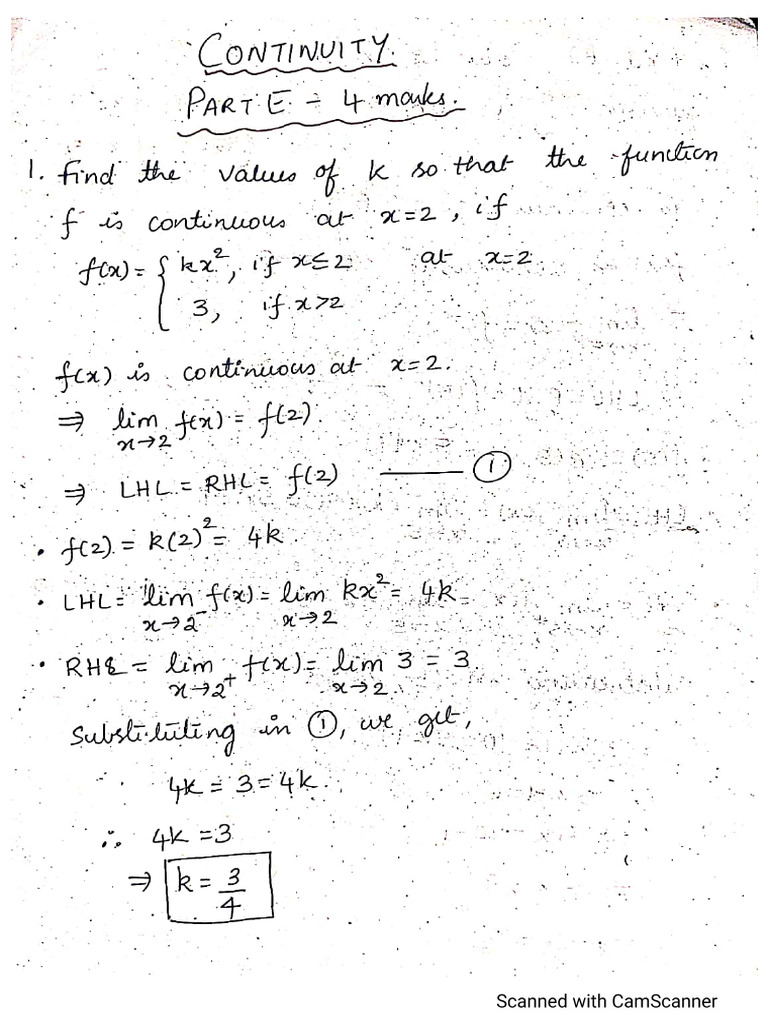 CONTINUITY.
PART E - 4 marks.
1. Find the values of k so that the function
f is continuous at x=2, if
f(x) = { kx², if x≤2 at x=2
3, if x>2
f(x) is continuous at x=2.
⇒ lim x→2 f(x) = f(2).
⇒ LHL = RHL = f(2) —— ①
• f(2) = k(2)² = 4k
• LHL = lim x→2⁻ f(x) = lim x→2 kx² = 4k
• RHL = lim x→2⁺ f(x) = lim x→2 3 = 3
Substituting in ①, we get,
4k = 3 = 4k
∴ 4k = 3
⇒ k = 3/4
Scanned with CamScanner